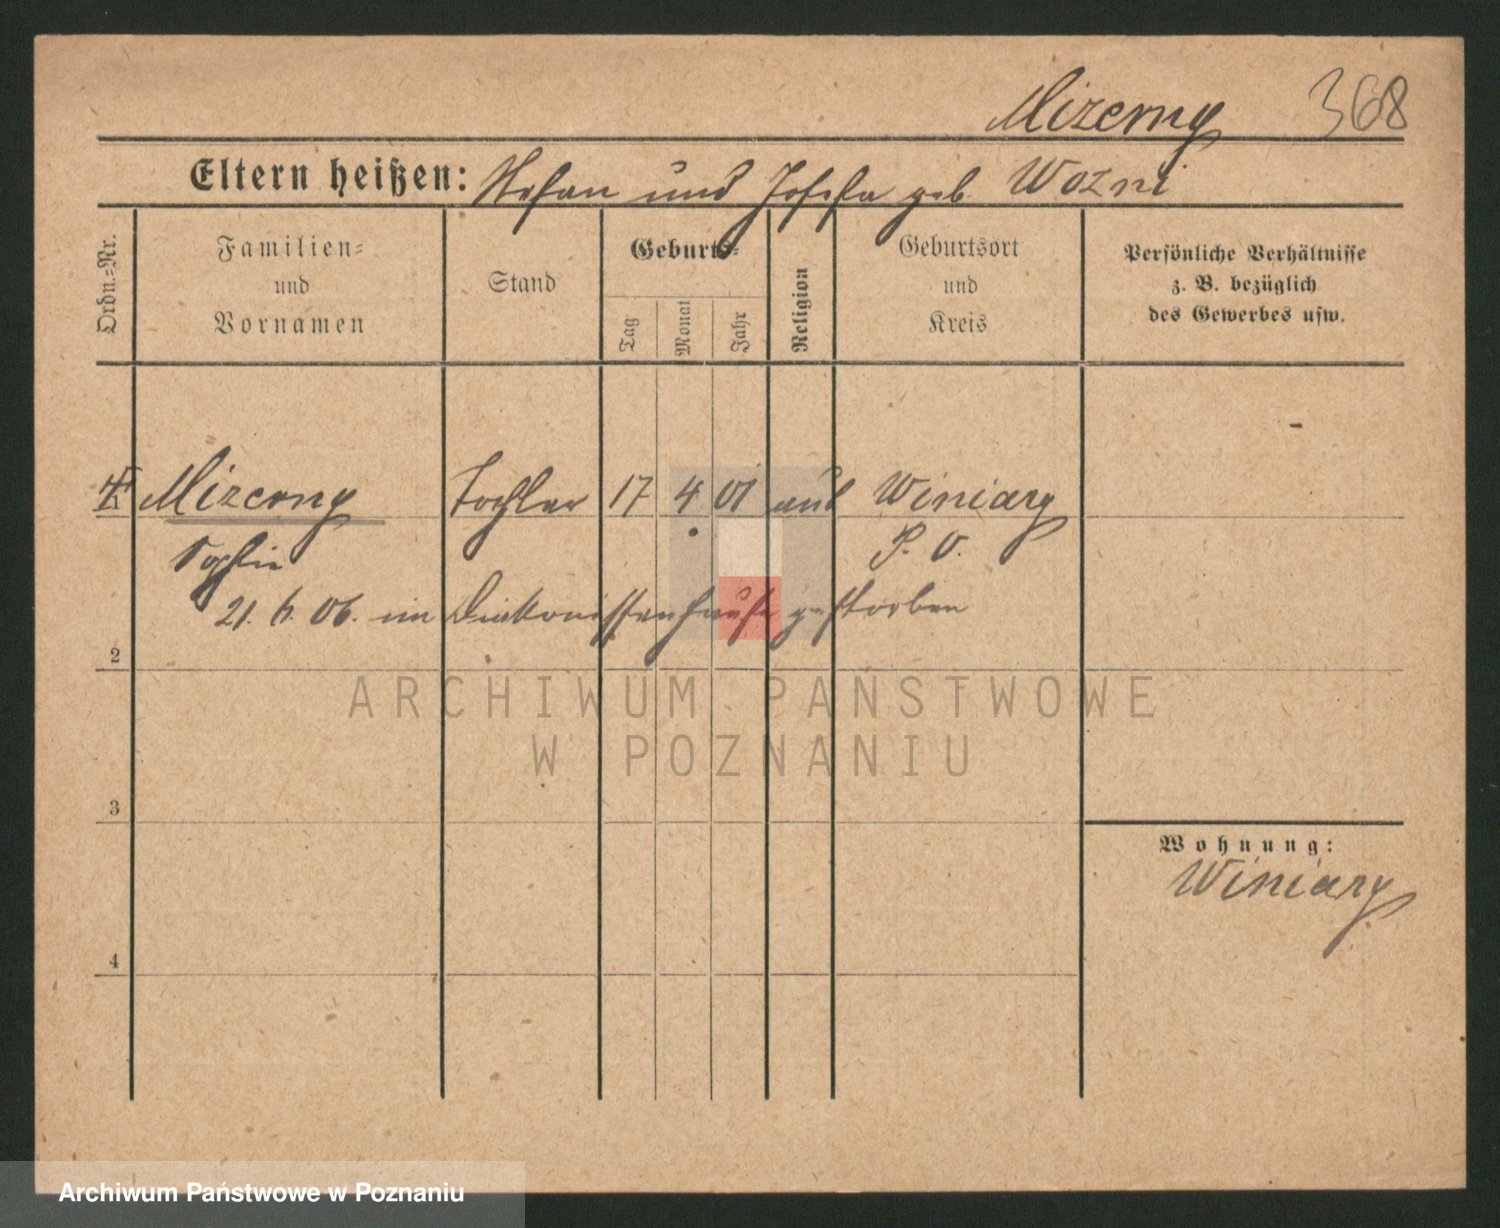 Mizerny 368
Eltern heißen: Stefan und Josefa geb. Wozni
Ordn.-Nr.
Familien-
und
Vornamen
Stand
Geburts-
Tag
Monat
Jahr
Religion
Geburtsort
und
Kreis
Persönliche Verhältnisse
z. B. bezüglich
des Gewerbes usw.
Mizerny Tochter 17 4 01 Winiary
Sophie P. O.
21. 6. 06. im Diakonissenhause gestorben
2
3
4
Wohnung:
Winiary
ARCHIWUM PAŃSTWOWE
W POZNANIU
Archiwum Państwowe w Poznaniu